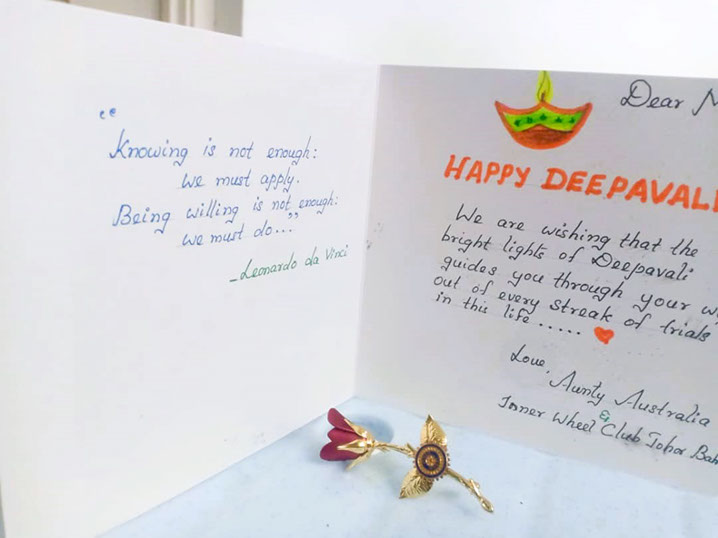 “
Knowing is not enough:
we must apply.
Being willing is not enough:
we must do...”
–Leonardo da Vinci
Dear
HAPPY DEEPAVALI
We are wishing that the
bright lights of Deepavali
guides you through your
out of every streak of trials
in this life .....
Love,
Aunty Australia
&
Inner Wheel Club Johor